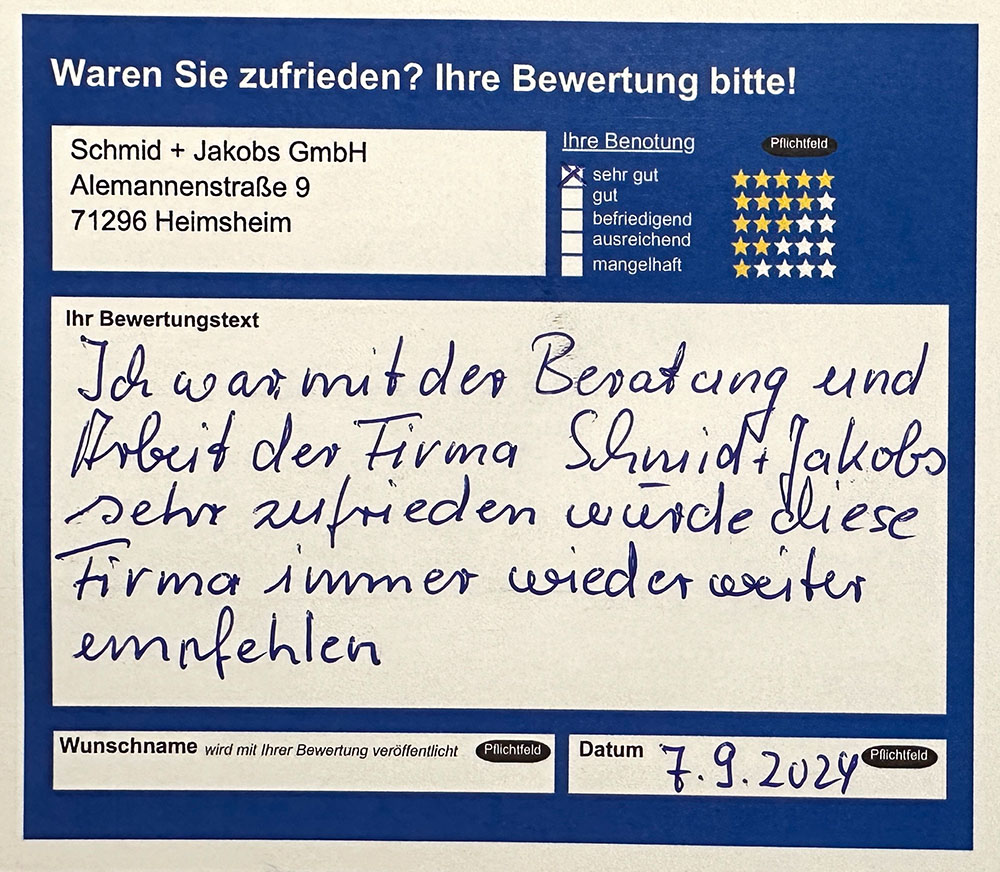 Waren Sie zufrieden? Ihre Bewertung bitte!
Schmid + Jakobs GmbH
Alemannenstraße 9
71296 Heimsheim
Ihre Benotung Pflichtfeld
sehr gut
gut
befriedigend
ausreichend
mangelhaft
Ihr Bewertungstext
Ich war mit der Beratung und
Arbeit der Firma Schmid + Jakobs
sehr zufrieden würde diese
Firma immer wieder weiter
empfehlen
Wunschname wird mit Ihrer Bewertung veröffentlicht Pflichtfeld
Datum 7.9.2024 Pflichtfeld